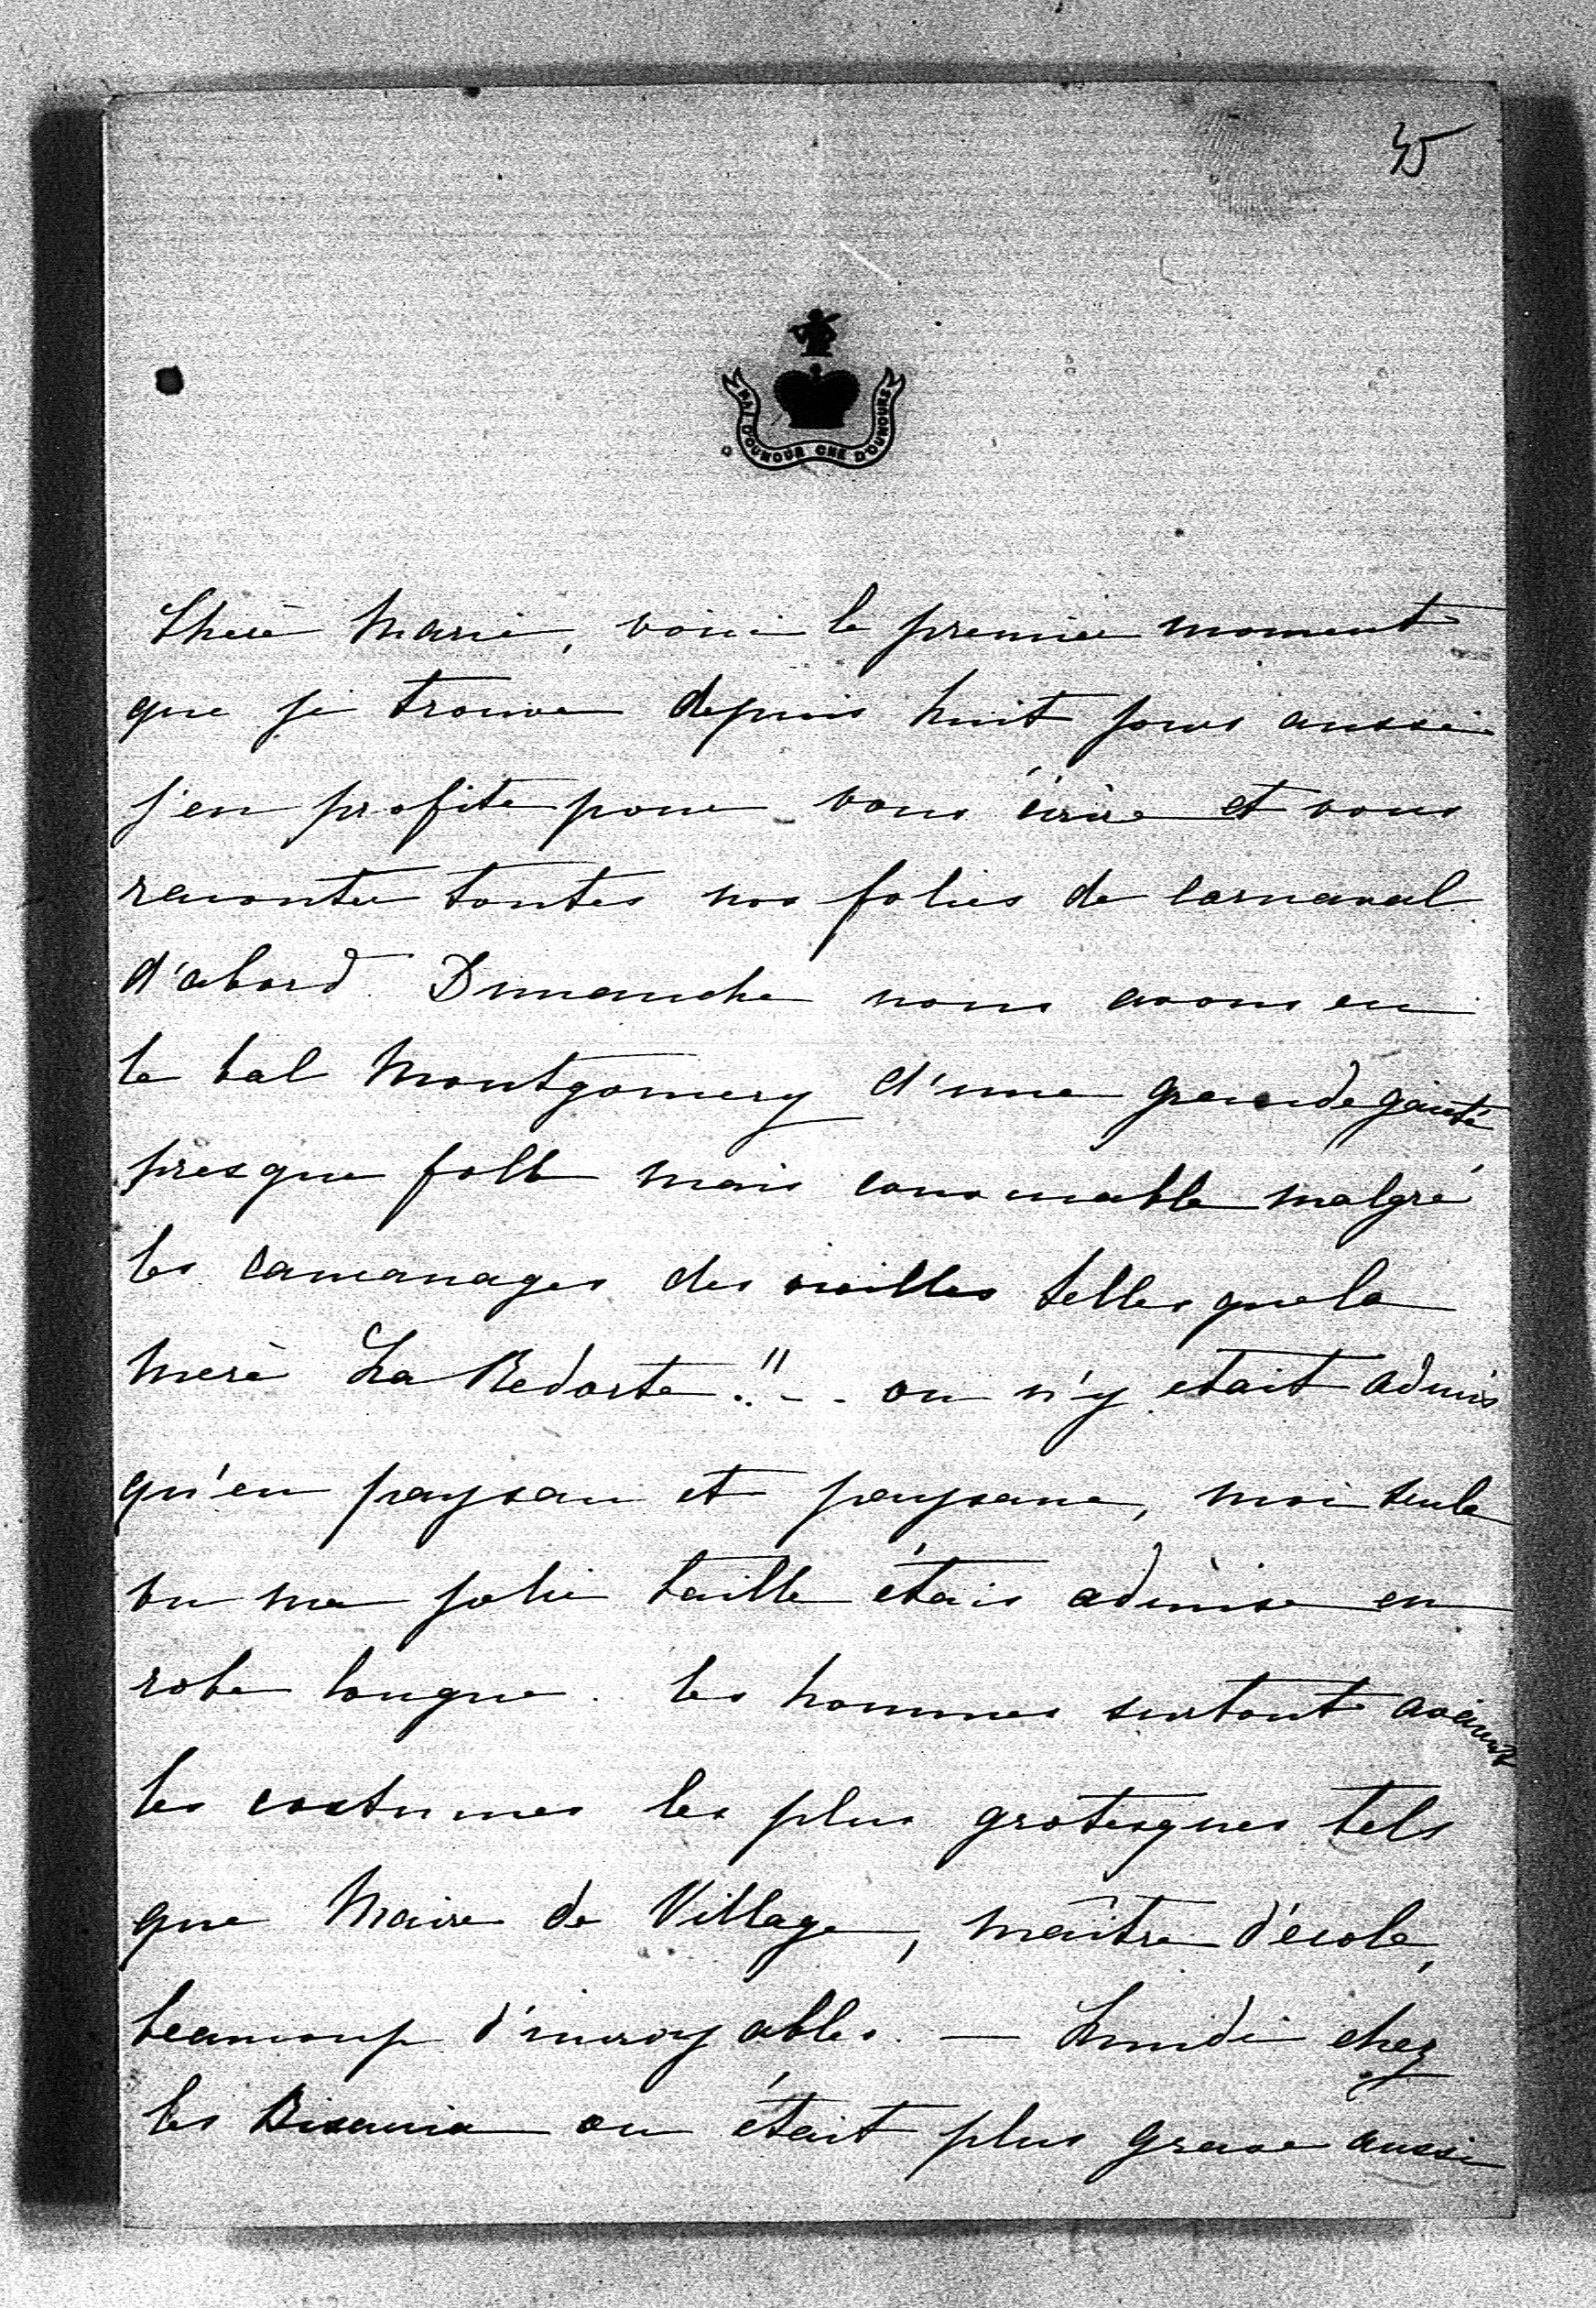 35
PAI D'OUNOUR CHE D'OUNOURS
Cherè Marie, voici le premier moment
que je trouve depuis huit jours aussi
j'en profite pour vous écrire et vous
raconter toutes nos folies de carnaval
d'abord Dimanche nous avons eu
le bal Montgomery d'une grande gaieté
presque folle mais convenable malgré
les camanages des vieilles telles que la
merè La Redorte !! - . on n'y etait admis
qu'en paysan et paysane, moi seule
vu ma jolie taille étais admise en
robe longue . les hommes surtout avaient
les costumes les plus grotesques tels
que Maire de Village, maître d'école,
beaucoup d'incroyables. — Lundi chez
les on était plus grave aussi